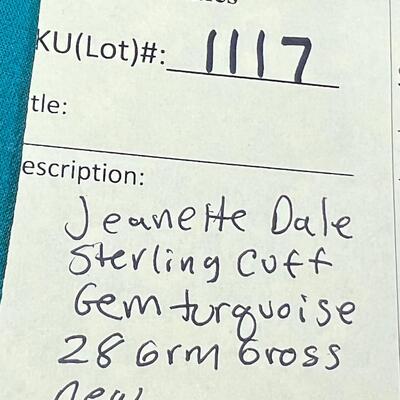 KU(Lot)#: 1117
tle:
escription:
Jeanette Dale
Sterling Cuff
Gem turquoise
28 Grm Gross
new